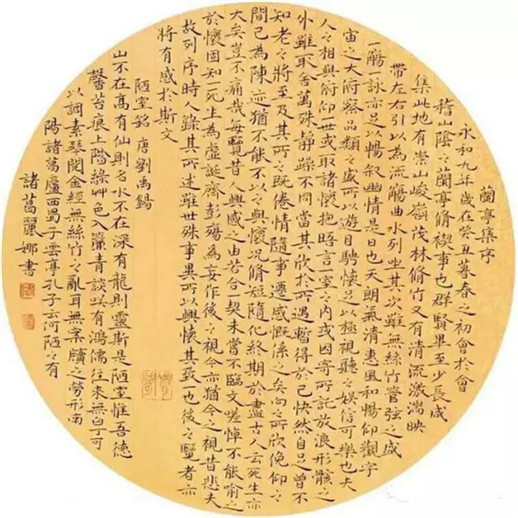 蘭亭集序
永和九年歲在癸丑暮春之初會於會
稽山陰之蘭亭脩禊事也群賢畢至少長咸
集此地有崇山峻嶺茂林脩竹又有清流激湍映
帶左右引以為流觴曲水列坐其次雖無絲竹管弦之盛
一觴一詠亦足以暢敘幽情是日也天朗氣清惠風和暢仰觀宇
宙之大俯察品類之盛所以遊目騁懷足以極視聽之娛信可樂也夫
人之相與俯仰一世或取諸懷抱晤言一室之內或因寄所託放浪形骸之
外雖取舍萬殊靜躁不同當其欣於所遇暫得於己快然自足曾不
知老之將至及其所之既倦情隨事遷感慨係之矣向之所欣俛仰之
間已為陳迹猶不能不以之興懷況脩短隨化終期於盡古人云死生亦
大矣豈不痛哉每覽昔人興感之由若合契未嘗不臨文嗟悼不能喻之
於懷固知一死生為虛誕齊彭殤為妄作後之視今亦猶今之視昔悲夫
故列序時人錄其所述雖世殊事異所以興懷其致一也後之覽者亦
將有感於斯文
陋室銘 唐 劉禹錫
山不在高有仙則名水不在深有龍則靈斯是陋室惟吾德
馨苔痕上階綠艸色入簾青談笑有鴻儒往來無白丁可
以調素琴閱金經無絲竹之亂耳無案牘之勞形南
陽諸葛廬西蜀子雲亭孔子云何陋之有
諸葛麗娜書